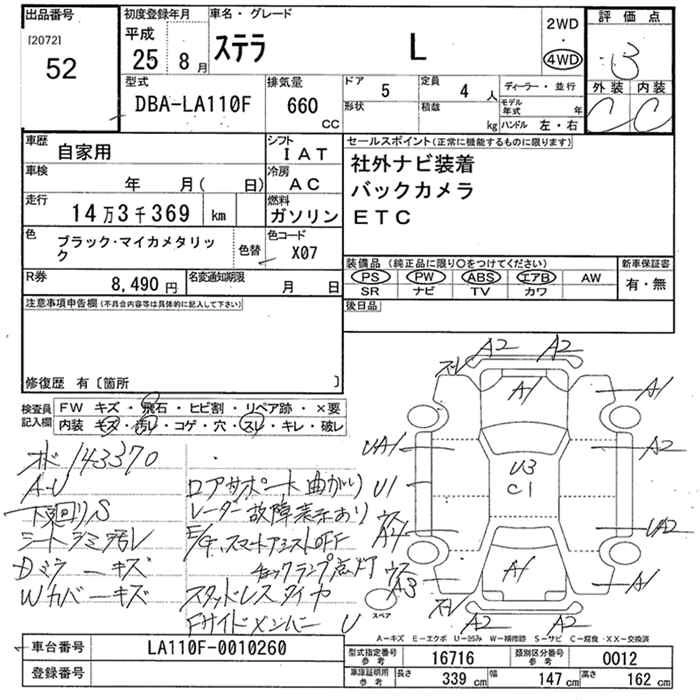 出品番号
[2072]
52
初度登録年月
平成
25 8 月
車名・グレード
ステラ L
2WD
・
4WD
評価点
3
外装 内装
C C
型式
DBA-LA110F
排気量
660
CC
ドア 5
定員 4 人
形状
積載 kg
ディーラー・並行
モデル年式 年
ハンドル 左・右
車歴
自家用
シフト
IAT
車検
年 月( 日)
冷房
AC
走行
14万3千369 km
燃料
ガソリン
色
ブラック・マイカメタリック
色替
色コード
X07
R券
8,490 円
名変通知期限
月 日
セールスポイント(正常に機能するものに限ります)
社外ナビ装着
バックカメラ
ETC
装備品 (純正品に限り○をつけてください)
PS PW ABS エアB AW
SR ナビ TV カワ
新車保証書
有・無
後日品
注意事項申告欄(不具合内容等は具体的に記入して下さい)
修復歴 有〔箇所 〕
検査員記入欄
FW キズ・飛石・ヒビ割・リペア跡・×要
内装 キズ・汚レ・コゲ・穴・スレ・キレ・破レ
オド 143370
A-U
下廻りS
シートシミ汚レ
Dミラーキズ
Wカバーキズ
ロアサポート曲がり
レーダー故障表示あり
E/G、スマートアシストOFF
チェックランプ点灯
スタッドレスタイヤ
Fサイドメンバー U
A2 A2
A1 A1
UA1 A2
U3
C1
U1
A4 UA2
A3 A1 A1
A2 A2
スペア
A-キズ E-エクボ U-凹み W-補修跡 S-サビ C-腐食・XX-交換済
車台番号
LA110F-0010260
登録番号
型式指定番号 参考 16716
類別区分番号 参考 0012
車庫証明用 参考
長さ 339 cm
幅 147 cm
高さ 162 cm